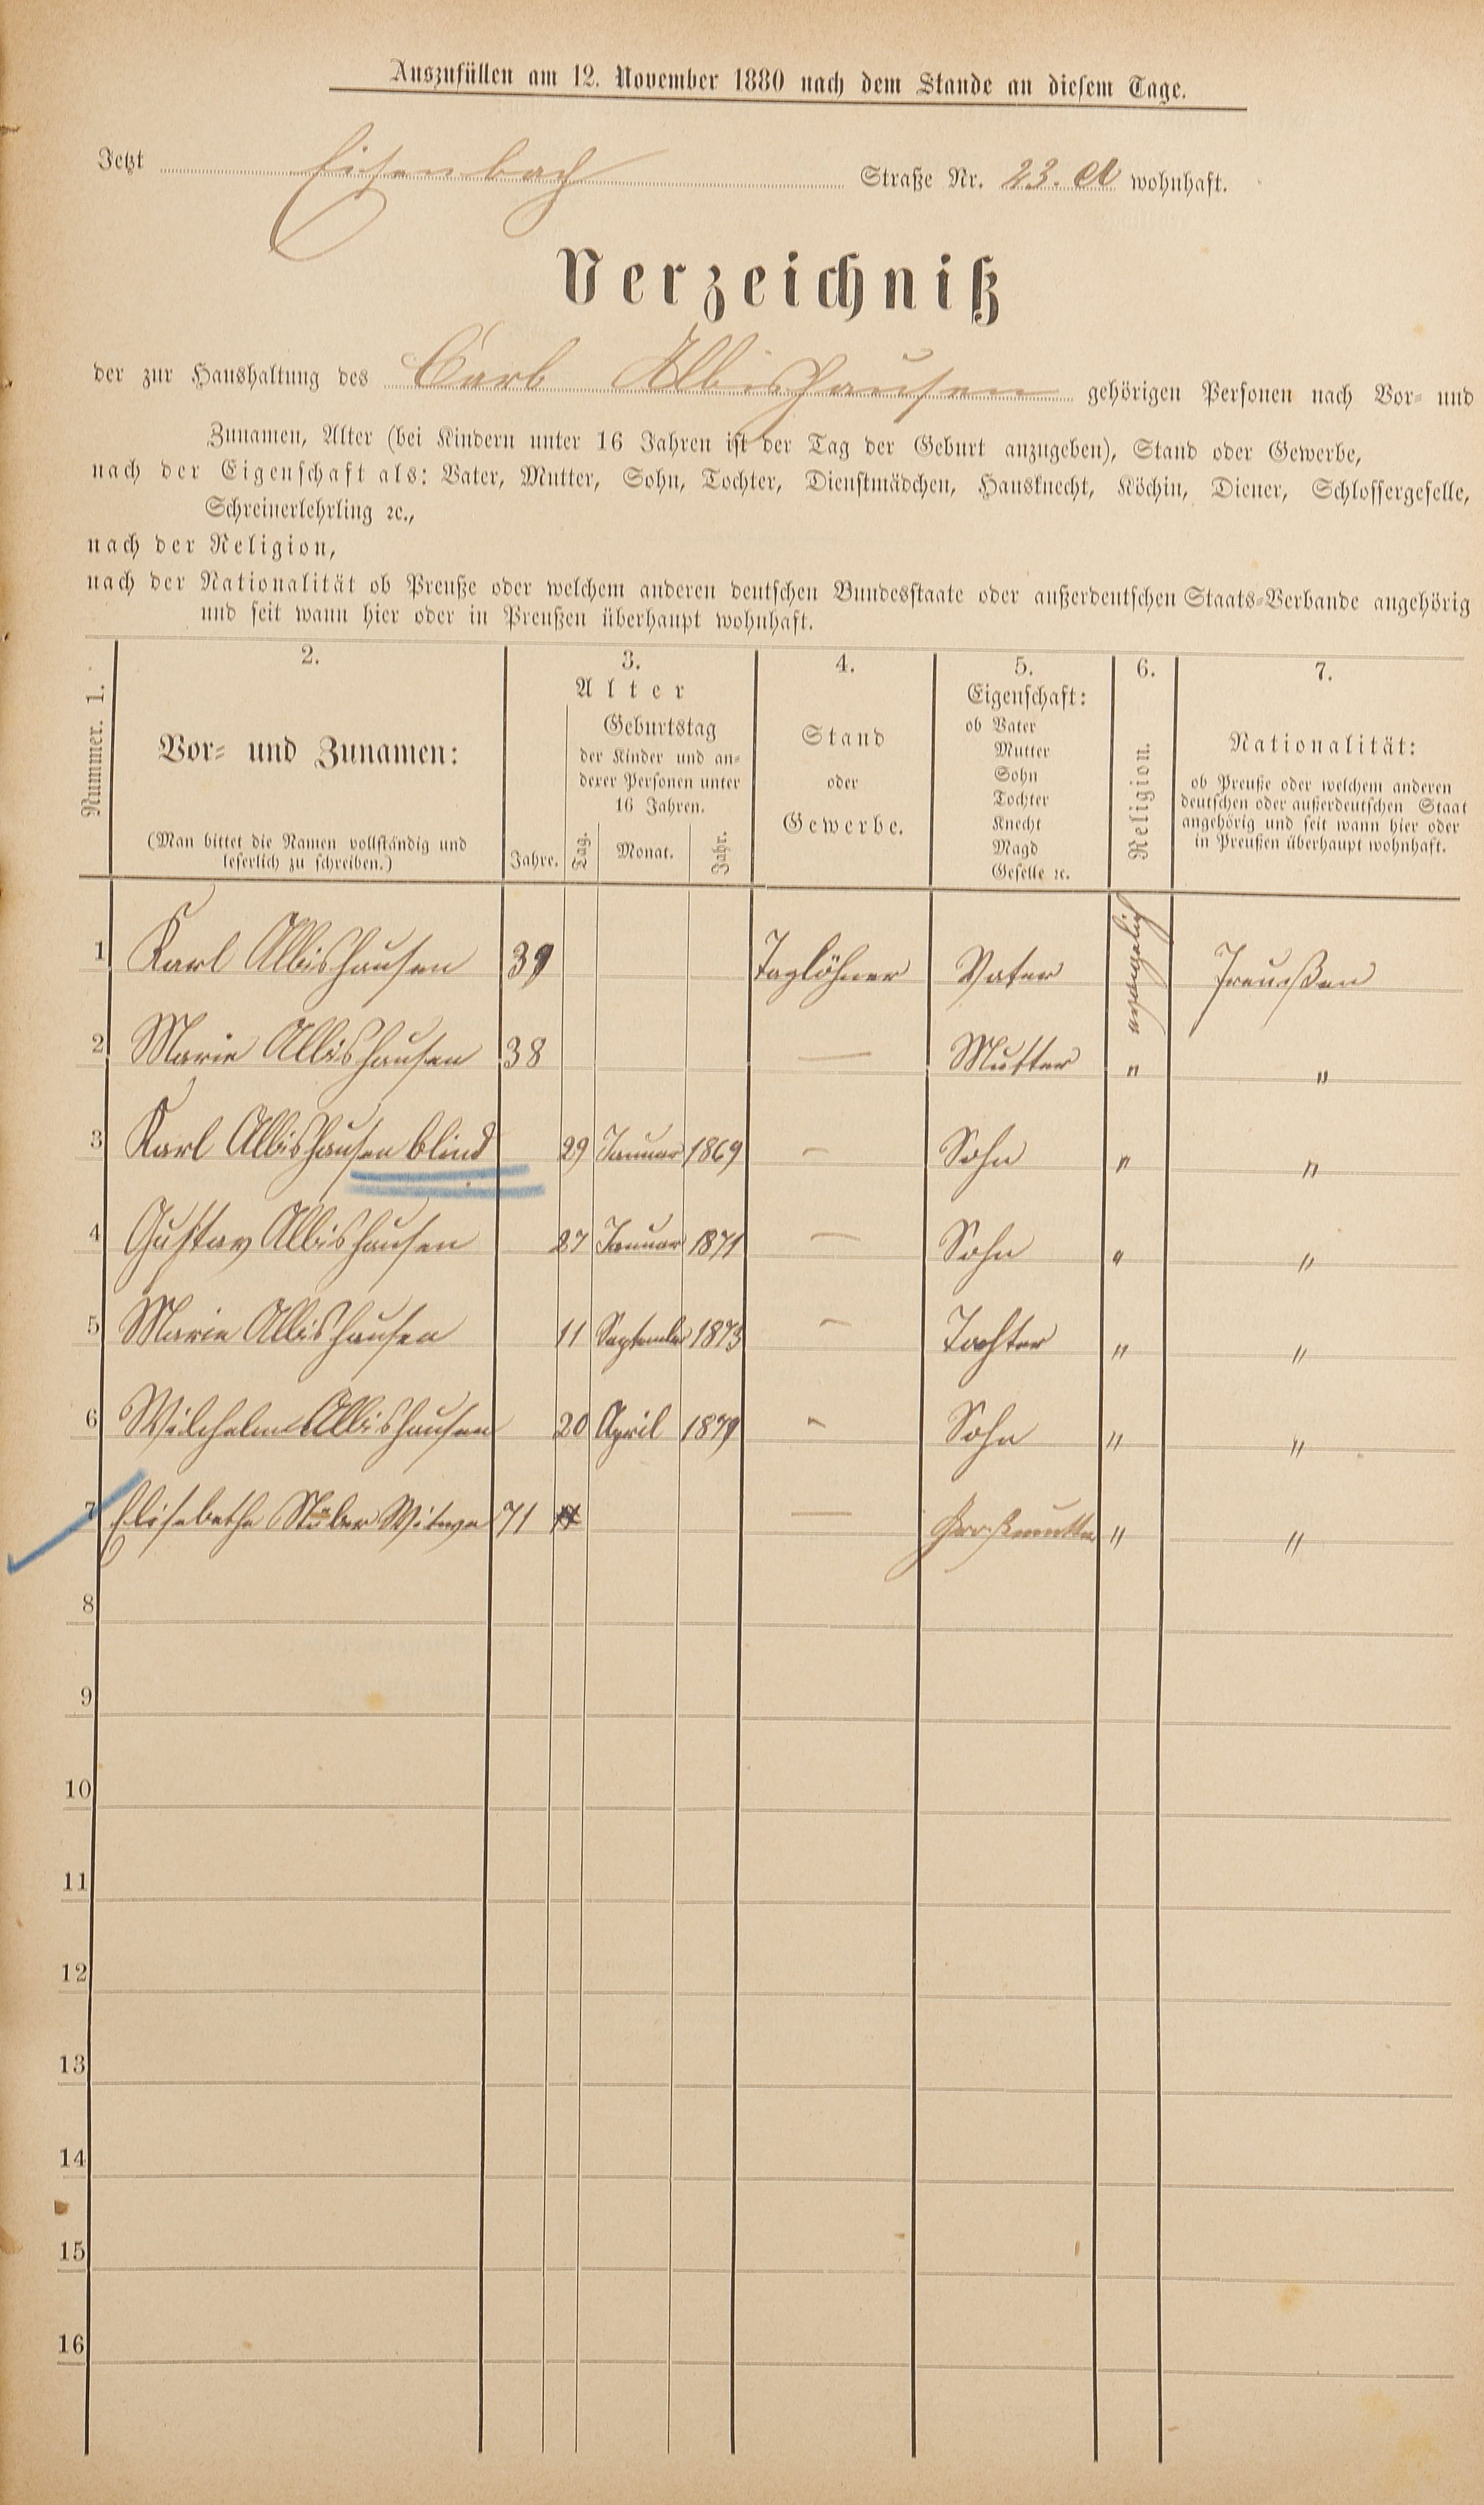 Auszufüllen am 12. November 1880 nach dem Stande an diesem Tage.
Jetzt Eisenbach Straße Nr. 23. A wohnhaft.
Verzeichniß
der zur Haushaltung des Carl Albishausen gehörigen Personen nach Vor- und
Zunamen, Alter (bei Kindern unter 16 Jahren ist der Tag der Geburt anzugeben), Stand oder Gewerbe,
nach der Eigenschaft als: Vater, Mutter, Sohn, Tochter, Dienstmädchen, Hausknecht, Köchin, Diener, Schlossergeselle,
Schreinerlehrling ꝛc.,
nach der Religion,
nach der Nationalität ob Preuße oder welchem anderen deutschen Bundesstaate oder außerdeutschen Staats-Verbande angehörig
und seit wann hier oder in Preußen überhaupt wohnhaft.
Nummer. 1.
2.
Vor- und Zunamen:
(Man bittet die Namen vollständig und
leserlich zu schreiben.)
3.
Alter
Jahre.
Geburtstag
der Kinder und an-
derer Personen unter
16 Jahren.
Tag. Monat. Jahr.
4.
Stand
oder
Gewerbe.
5.
Eigenschaft:
ob Vater
Mutter
Sohn
Tochter
Knecht
Magd
Geselle ꝛc.
6.
Religion.
7.
Nationalität:
ob Preuße oder welchem anderen
deutschen oder außerdeutschen Staat
angehörig und seit wann hier oder
in Preußen überhaupt wohnhaft.
1 Karl Albishausen 39 Taglöhner Vater evangelisch Preußen
2 Marie Albishausen 38 — Mutter " "
3 Karl Albishausen blind 29 Januar 1869 — Sohn " "
4 Gustav Albishausen 27 Januar 1871 — Sohn " "
5 Marie Albishausen 11 September 1873 — Tochter " "
6 Wilchelm Albishausen 20 April 1879 — Sohn " "
7 Elisabetha Stüber Witwe 71 — Großmutter " "
8
9
10
11
12
13
14
15
16